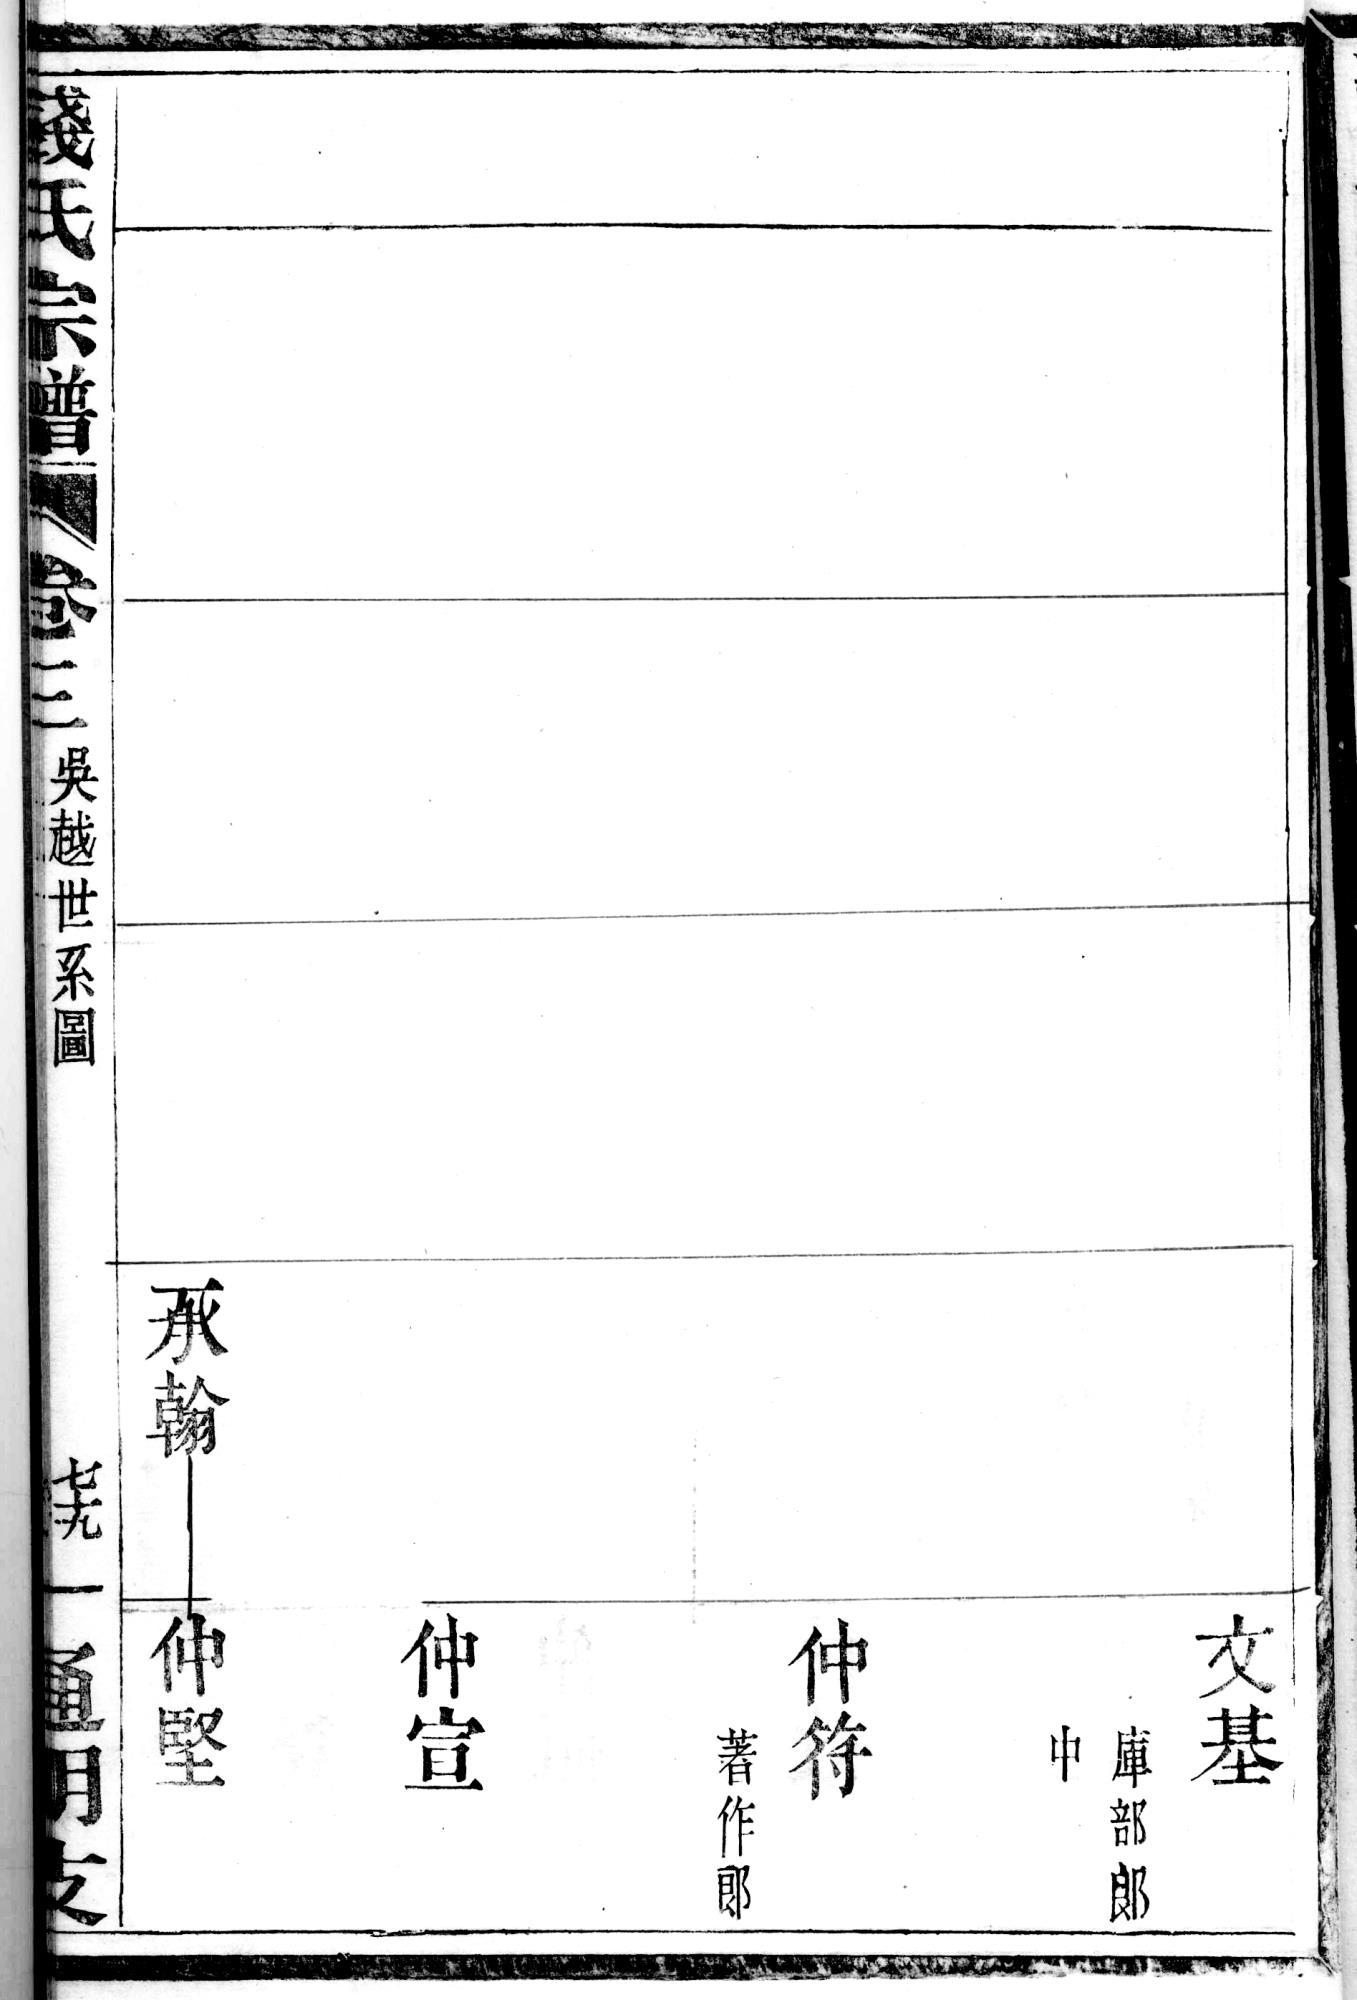 文基
庫部郎
中
仲符
著作郎
仲宣
承翰
仲堅
錢氏宗譜
卷三
吳越世系圖
七十九
一
通明支